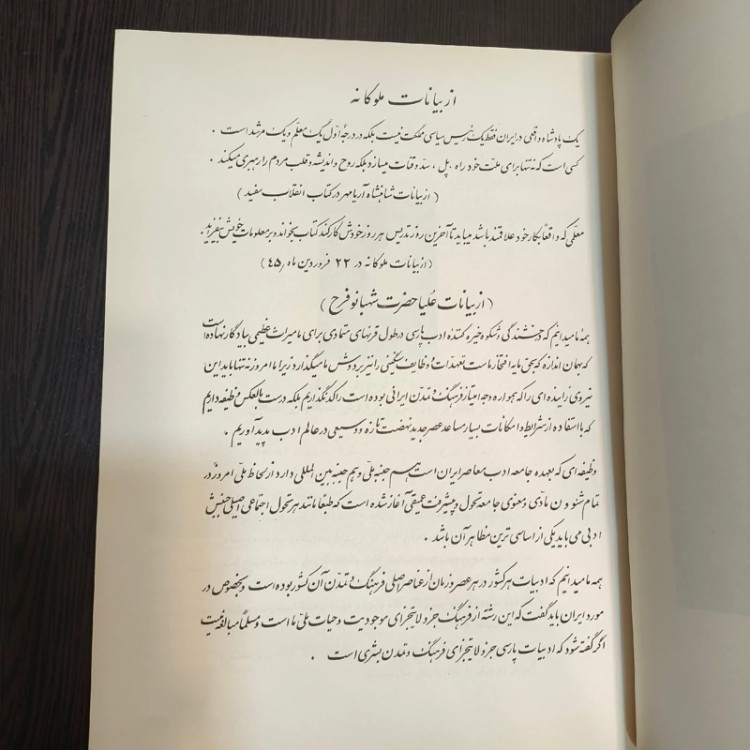 از بیانات ملوکانه
یک پادشاه واقعی در ایران فقط یک رئیس سیاسی مملکت نیست بلکه در درجهٔ اول یک معلم و یک مرشد است .
کسی است که نه تنها برای ملت خود راه ، پل ، سد و قنات میسازد بلکه روح و اندیشه و قلب مردم را رهبری میکند
( از بیانات شاهنشاه آریامهر در کتاب انقلاب سفید )
معلمی که واقعاً بکار خود علاقمند باشد میباید تا آخرین روز تدریس هر روز خودش کار کند کتاب بخواند و بر معلومات خویش بیفزاید .
( از بیانات ملوکانه در ۲۲ فروردین ماه ۴۵ )
( از بیانات علیاحضرت شهبانو فرح )
همهٔ ما میدانیم که درخشندگی و شکوه خیره کنندهٔ ادب پارسی در طول قرنهای متمادی برای ما میراث عظیمی بیادگار نهاده است
که بهمان اندازه که بحق مایه افتخار ماست تعهدات و وظایف سنگینی را نیز بر دوش ما میگذارد زیرا ما امروز نه تنها باید این
نیروی زاینده ای را که همواره وجه امتیاز فرهنگ و تمدن ایرانی بوده است راکد نگذاریم بلکه درست بالعکس وظیفه داریم
که با استفاده از شرایط و امکانات بسیار مساعد عصر جدید نهضت تازه و وسیعی در عالم ادب پدید آوریم .
وظیفه ای که بعهده جامعه ادب معاصر ایران است هم جنبه ملی و هم جنبه بین المللی دارد از لحاظ ملی امروز در
تمام شئون مادی و معنوی جامعه تحول و پیشرفت عمیقی آغاز شده است که طبعاً مانند هر تحول اجتماعی اصیلی جنبش
ادبی می باید یکی از اساسی ترین مظاهر آن باشد .
همه ما میدانیم که ادبیات هر کشور در هر عصر و زمان از عناصر اصلی فرهنگ و تمدن آن کشور بوده است و بخصوص در
مورد ایران باید گفت که این رشته از فرهنگ جزو لایتجزای موجودیت و حیات ملی ما است و مسلماً مبالغه نیست
اگر گفته شود که ادبیات پارسی جزو لایتجزای فرهنگ و تمدن بشری است .